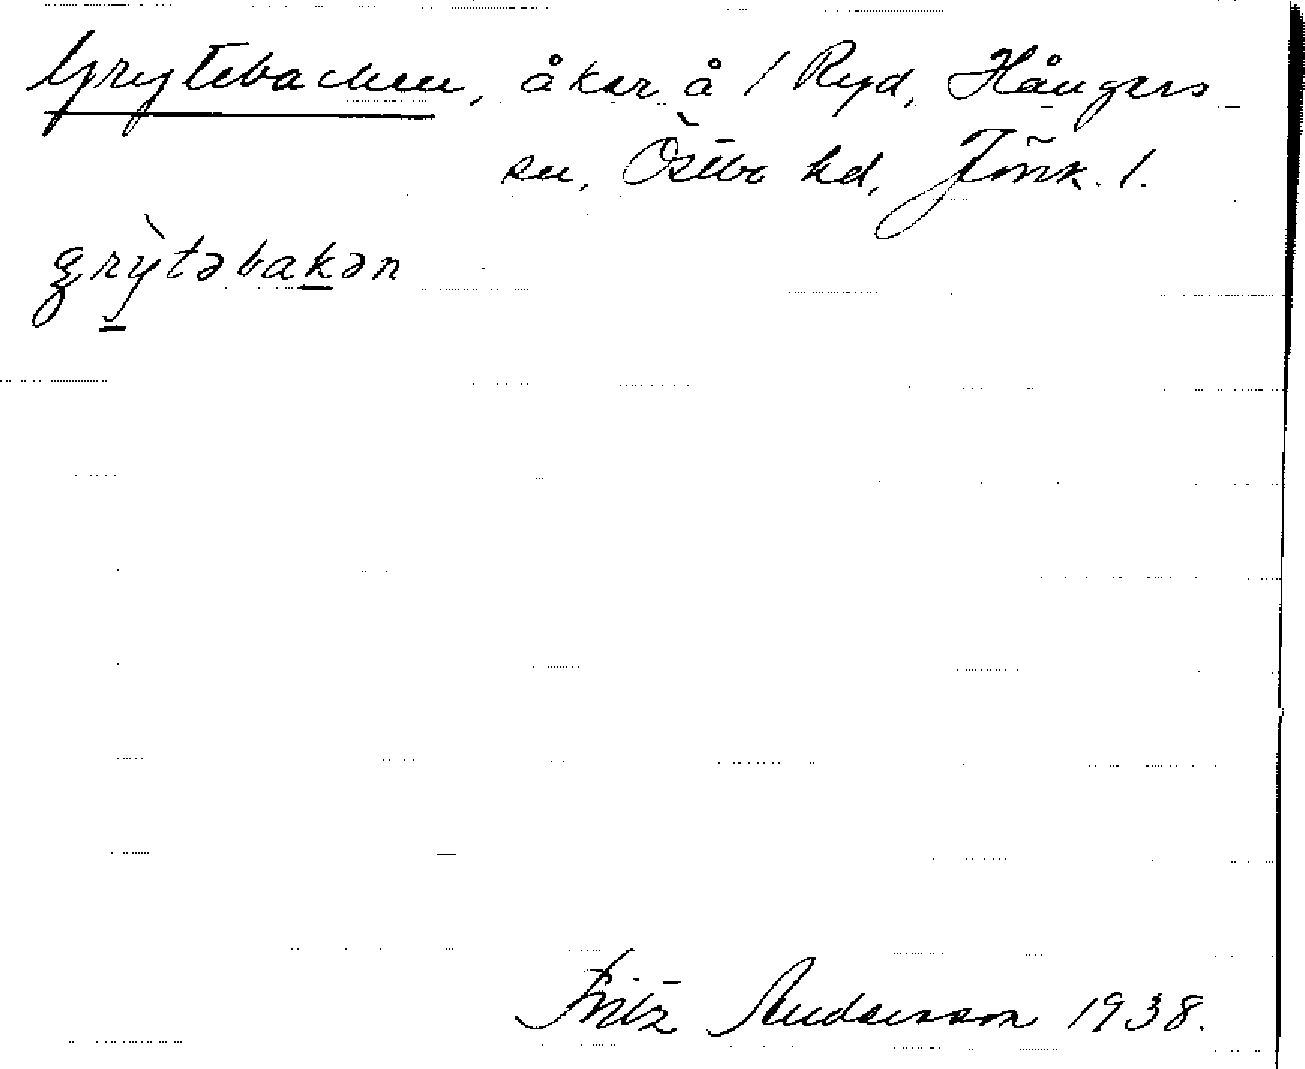 Grytebacken, åker å 1 Ryd, Hångers
sn, Östbo hd, Jönk. l.
grỳtəbakən
Fritz Andersson 1938.